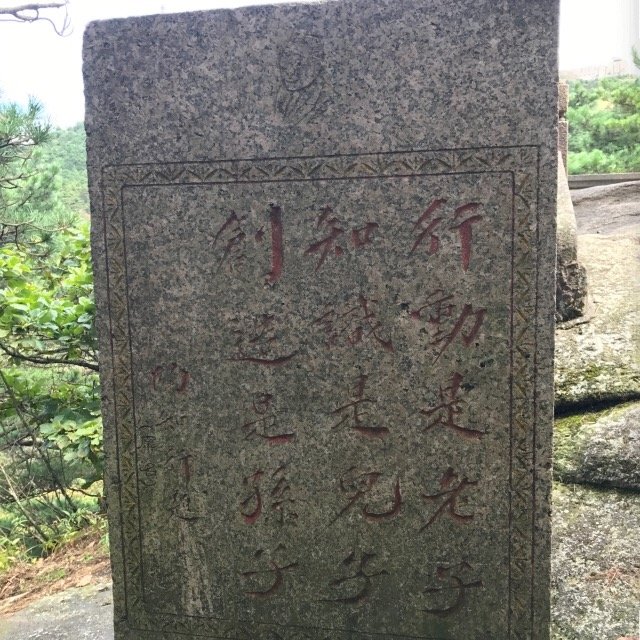 行動是老子
知識是兒子
創造是孫子
陶行知題